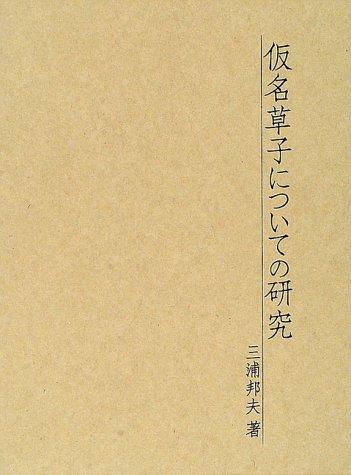 仮名草子についての研究
三浦邦夫 著